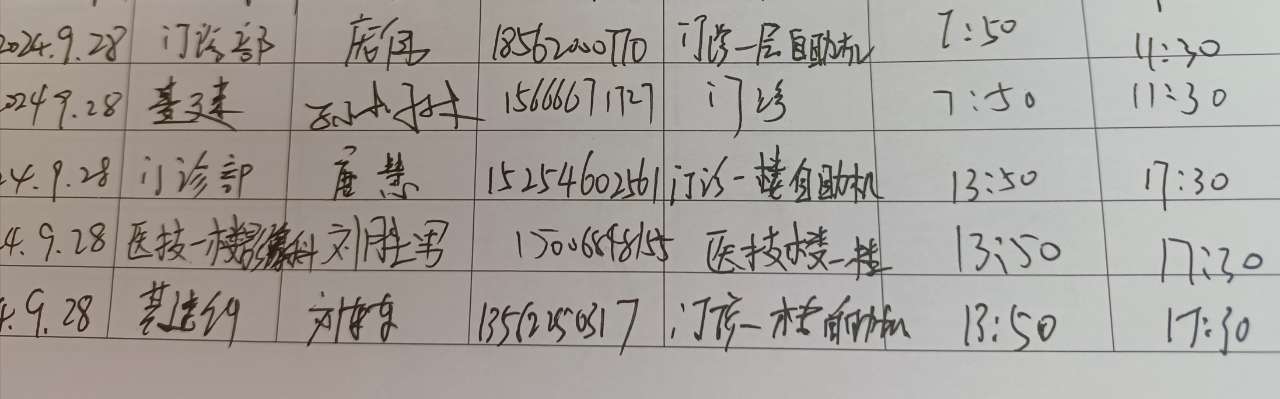 2024.9.28 门诊部 18562000770 门诊一层自助机 7:50 11:30
2024 9.28 基建 15666671727 门诊 7:50 11:30
4.9.28 门诊部 崔慧 15254602561 门诊一楼自助机 13:50 17:30
4.9.28 医技一楼影像科 刘胜男 15006848155 医技楼一楼 13:50 17:30
4.9.28 基建科 13562250317 门诊一楼自助机 13:50 17:30